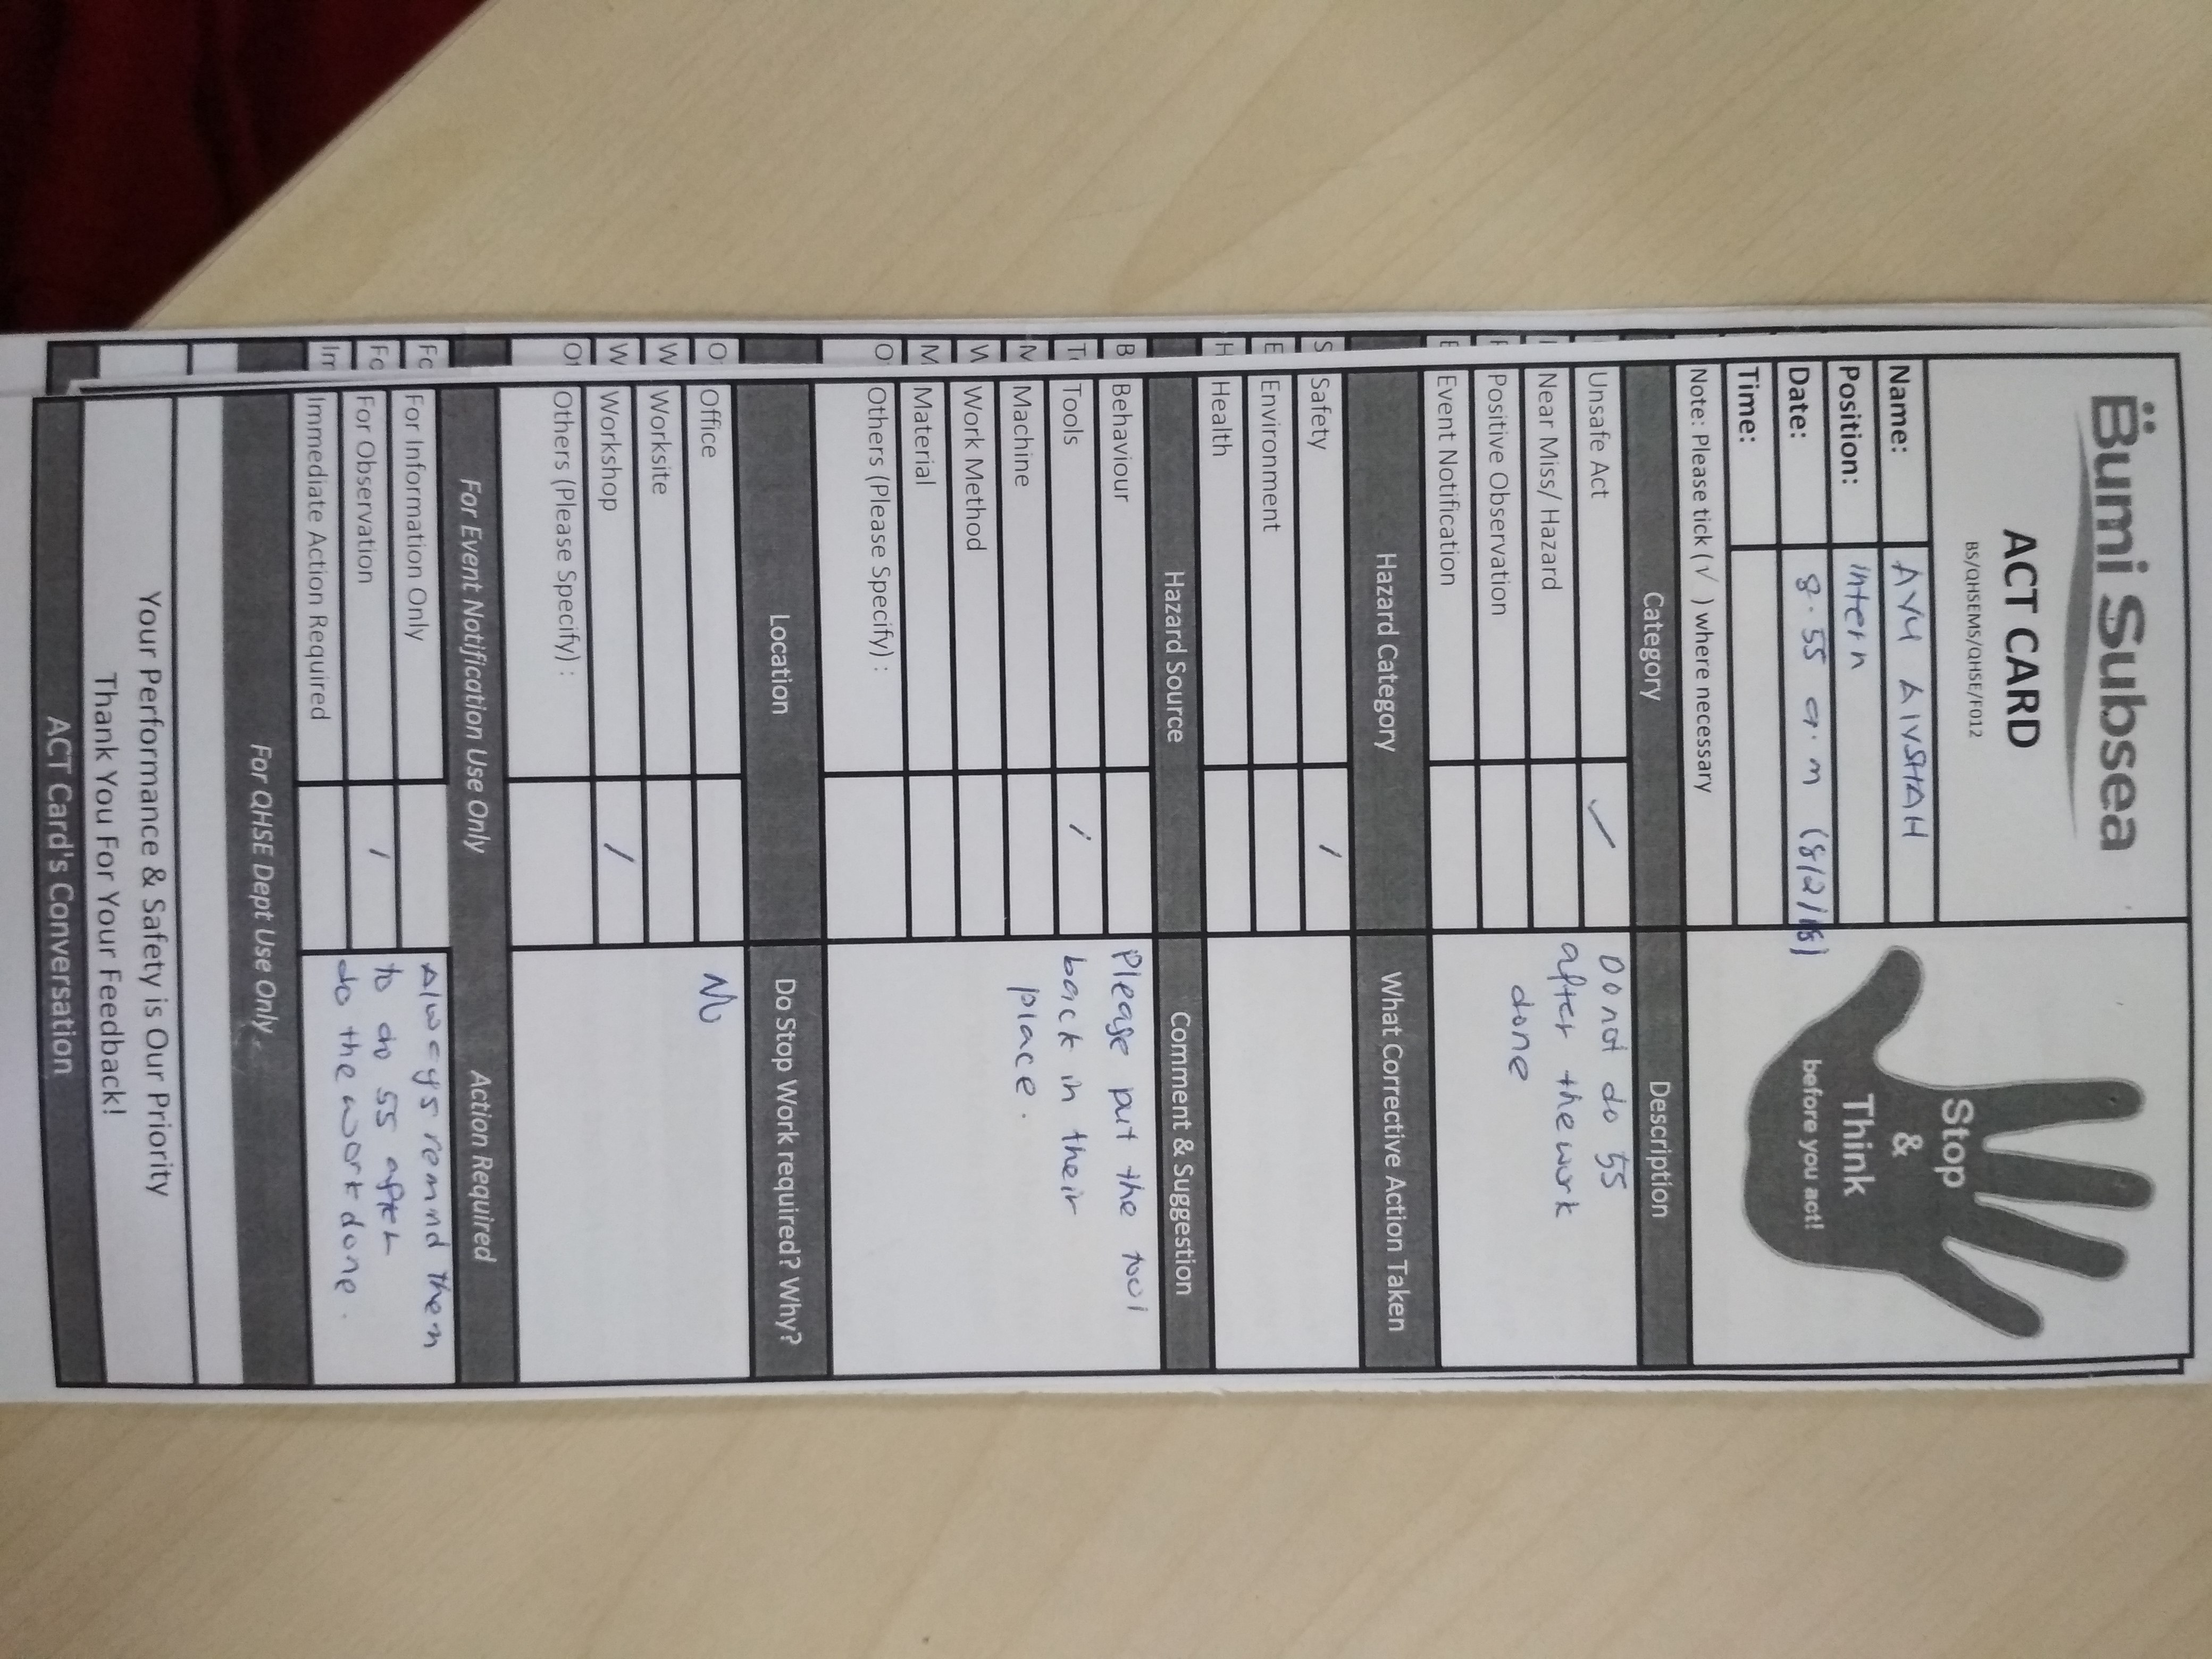 Bumi Subsea
ACT CARD
BS/QHSEMS/QHSE/F012
Stop
&
Think
before you act!
Name: AYU AIYSHAH
Position: intern
Date: 8.55 a.m (8/2/18)
Time:
Note: Please tick (√ ) where necessary
Category Description
Unsafe Act ✓ Do not do 5S
Near Miss/ Hazard after the work
Positive Observation done
Event Notification
Hazard Category What Corrective Action Taken
Safety /
Environment
Health
Hazard Source Comment & Suggestion
Behaviour Please put the tool
Tools / back in their
Machine place.
Work Method
Material
Others (Please Specify) :
Location Do Stop Work required? Why?
Office No
Worksite
Workshop /
Others (Please Specify) :
For Event Notification Use Only Action Required
For Information Only Always remind them
For Observation / to do 5S after
Immediate Action Required do the work done.
For QHSE Dept Use Only
Your Performance & Safety is Our Priority
Thank You For Your Feedback!
ACT Card's Conversation